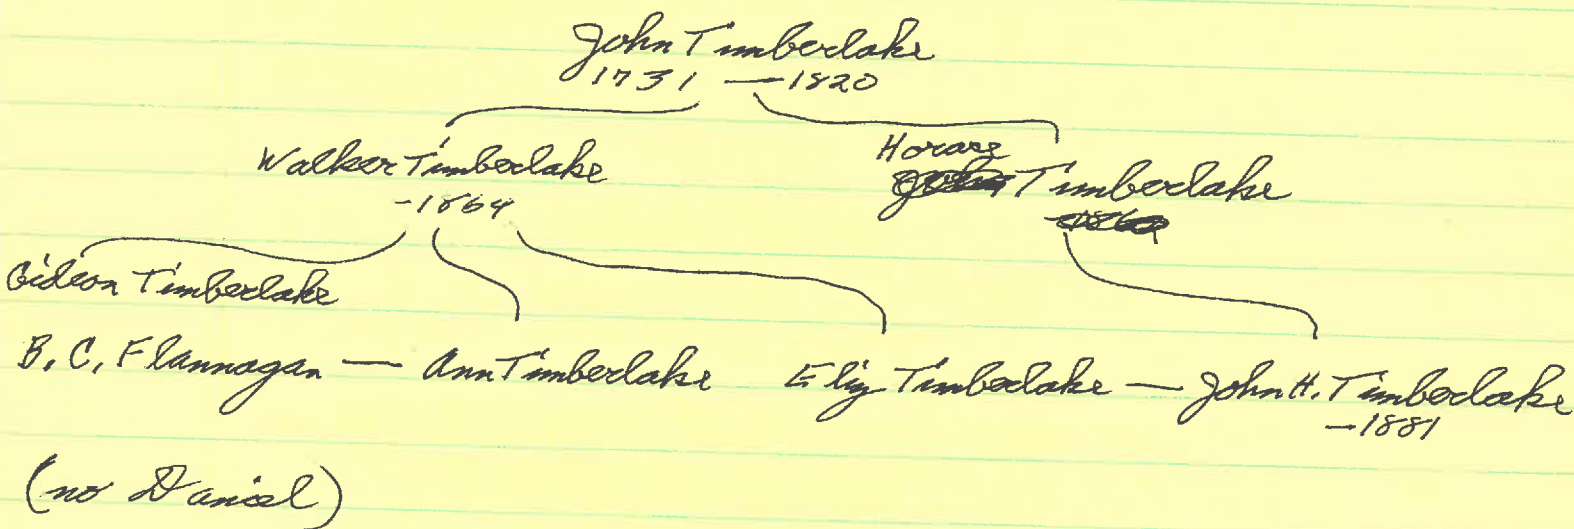 John Timberlake
1731 — 1820
Walker Timberlake
-1864
Horace
John Timberlake
Gideon Timberlake
B. C. Flannagan — Ann Timberlake Eliz Timberlake — John H. Timberlake
—1881
(no Daniel)